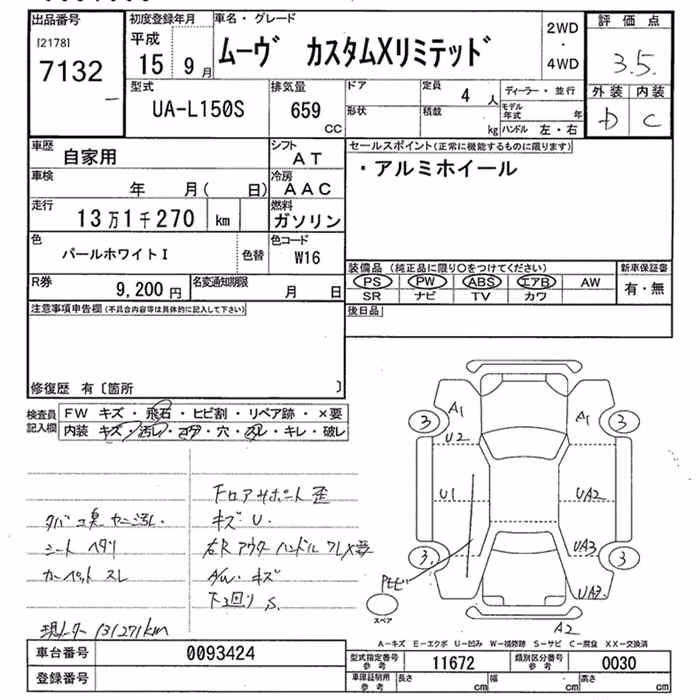 出品番号 初度登録年月 車名・グレード 2WD・4WD 評価点
[2178]
7132
平成 15 9月 ムーヴ カスタムXリミテッド 3.5
型式 排気量 ドア 定員 ディーラー・並行 外装 内装
UA-L150S 659 CC 4人 モデル年式 年 D C
形状 積載 kg ハンドル 左・右
車歴 自家用 シフト AT セールスポイント(正常に機能するものに限ります)
・アルミホイール
車検 年 月( 日) 冷房 AAC
走行 13万1千270 km 燃料 ガソリン
色 パールホワイトI 色替 色コード W16
装備品 (純正品に限り○をつけてください) 新車保証書
PS PW ABS エアB AW 有・無
SR ナビ TV カワ
R券 9,200円 名変通知期限 月 日
後日品
注意事項申告欄(不具合内容等は具体的に記入して下さい)
修復歴 有〔箇所 〕
検査員記入欄 FW キズ・飛石・ヒビ割・リペア跡・×要
内装 キズ・汚レ・コゲ・穴・スレ・キレ・破レ
A1 A1
3 3
U2 UA2
U1 UA2
3 3
UA3
UA3
A2
スペア
フロアサポート歪
タバコ臭 ヤニ汚レ.
キズ U.
シート ヘタリ
右R アウターハンドル ワレX要
カーペット スレ
下回り S.
現メーター 131271km
A-キズ E-エクボ U-凹み W-補修跡 S-サビ C-腐食 XX-交換済
車台番号 0093424
型式指定番号 参考 11672 類別区分番号 参考 0030
登録番号
車庫証明用 参考 長さ cm 幅 cm 高さ cm